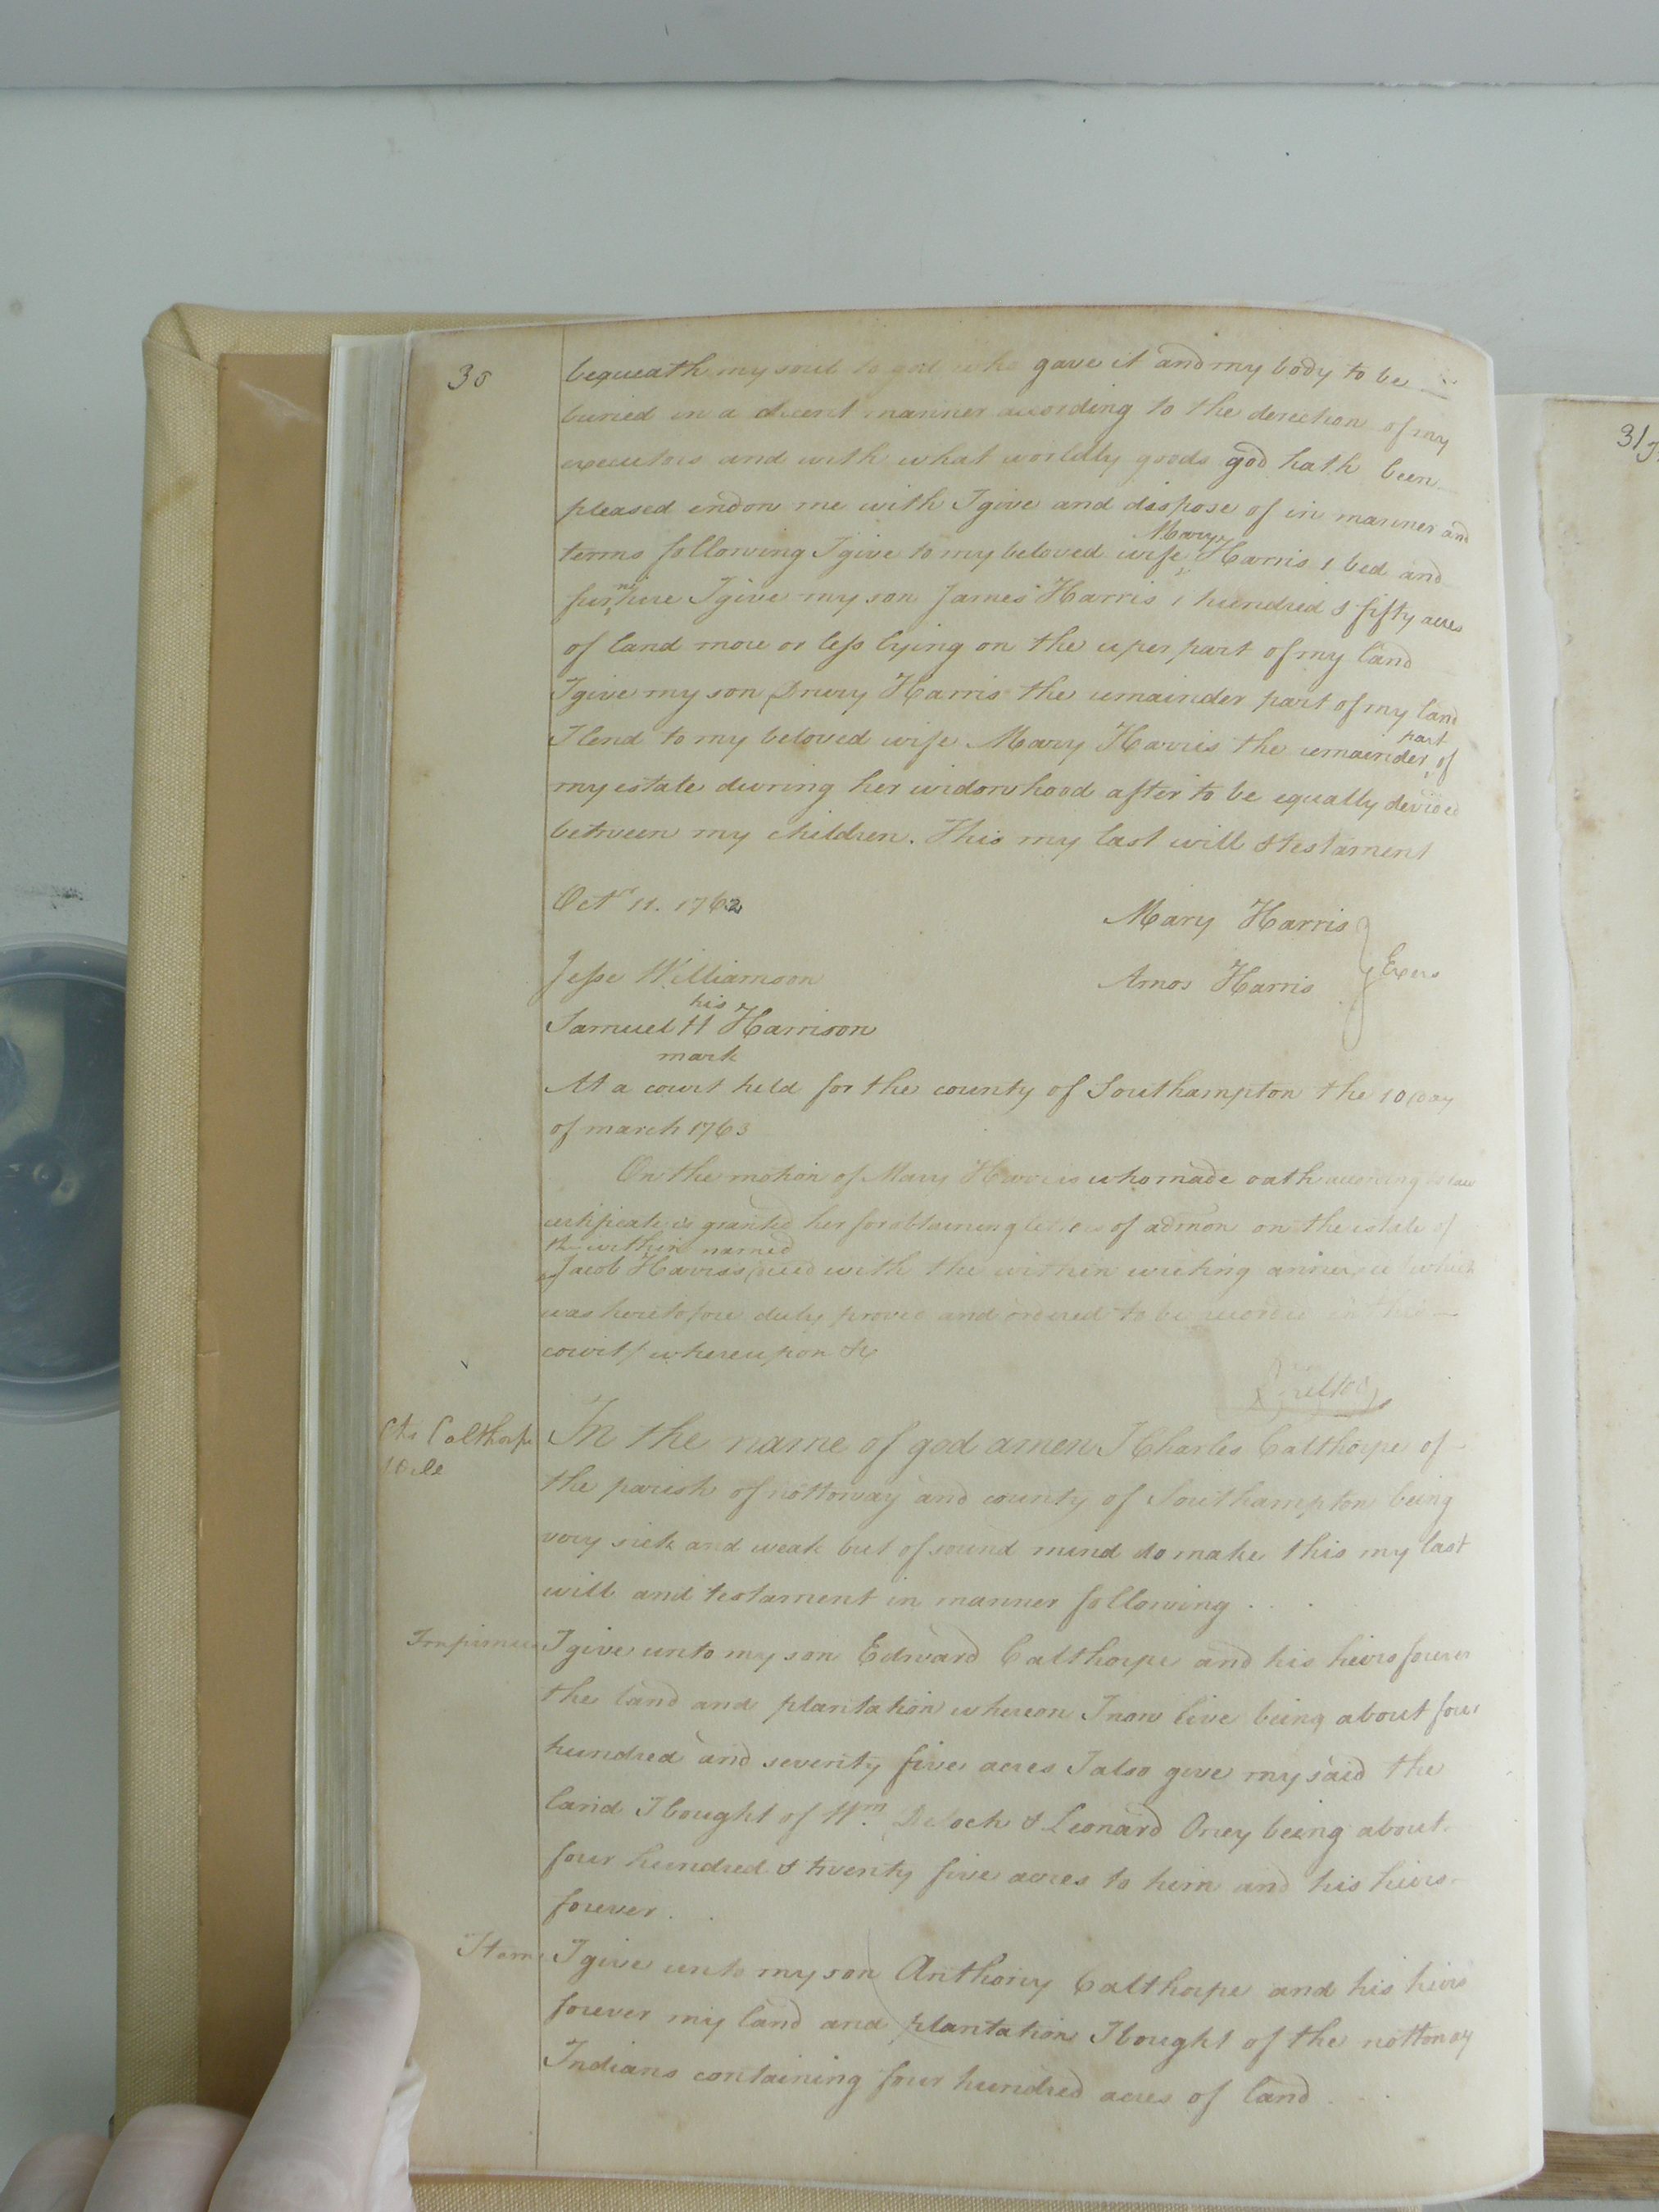 30
bequeath my soul to god who gave it and my body to be
buried in a decent manner according to the derection of my
executors and with what worldly goods god hath been
pleased endow me with I give and dispose of in manner and
terms following I give to my beloved wife Mary Harris 1 bed and
furniture I give my son James Harris 1 hundred & fifty acres
of land more or less lying on the uper part of my land
I give my son Drury Harris the remainder part of my land
I lend to my beloved wife Mary Harris the remainder part of
my estate during her widowhood after to be equally devided
between my children. This my last will & testament
Octr 11. 1762
Mary Harris
Jesse Williamson
Amos Harris
Exers
his
Samuel H Harrison
mark
At a court held for the county of Southampton the 10 day
of march 1763
On the motion of Mary Harris who made oath according to law
certificate is granted her for obtaining letters of admon on the estate of
the within named
Jacob Harris with the within writing annexed which
was heretofore duly proved and ordered to be recorded in this
court whereupon &c
Chs Calthorpe
Will
In the name of god amen I Charles Calthorpe of
the parish of nottoway and county of Southampton being
very sick and weak but of sound mind do make this my last
will and testament in manner following . . .
Impimus
I give unto my son Edward Calthorpe and his heirs forever
the land and plantation whereon I now live being about four
hundred and seventy five acres I also give my said the
land I bought of Wm. DeLoch & Leonard Oney being about
four hundred & twenty five acres to him and his heirs
forever . .
Item
I give unto my son Anthony Calthorpe and his heirs
forever my land and plantation I bought of the nottoway
Indians containing four hundred acres of land . . .
31